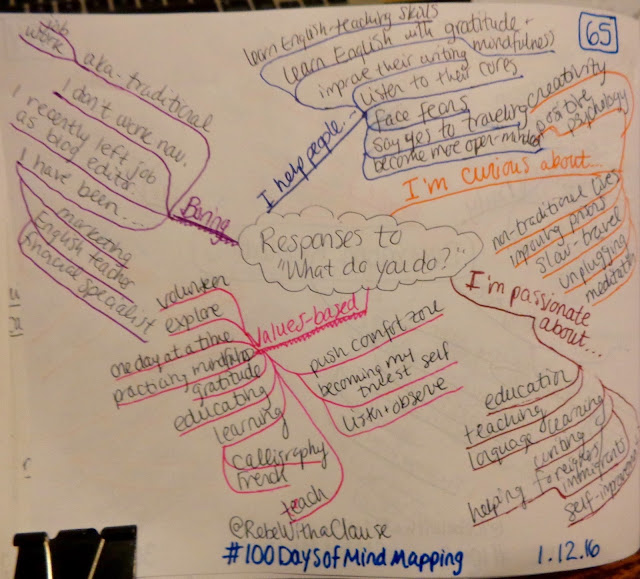 65
Responses to
"What do you do?"
I help people...
learn English-teaching skills
learn English with gratitude +
mindfulness
improve their writing
listen to their cores
face fears
say yes to traveling
become more open-minded
I'm curious about...
creativity
positive
psychology
non-traditional lives
improving priors
slow-travel
unplugging
meditation
I'm passionate
about...
education
teaching
language learning
writing
helping foreigners
immigrants
self-improvement
Values-based
volunteer
explore
one day at a time
practicing mindfulness
gratitude
educating
learning
calligraphy
French
teach
push comfort zone
becoming my
truest self
listen + observe
Boring
job
work
aka-traditional
I don't work now.
I recently left job
as blog editor.
I have been...
marketing
English teacher
financial specialist
@RebeWithaClause
#100DaysofMindMapping
1.12.16